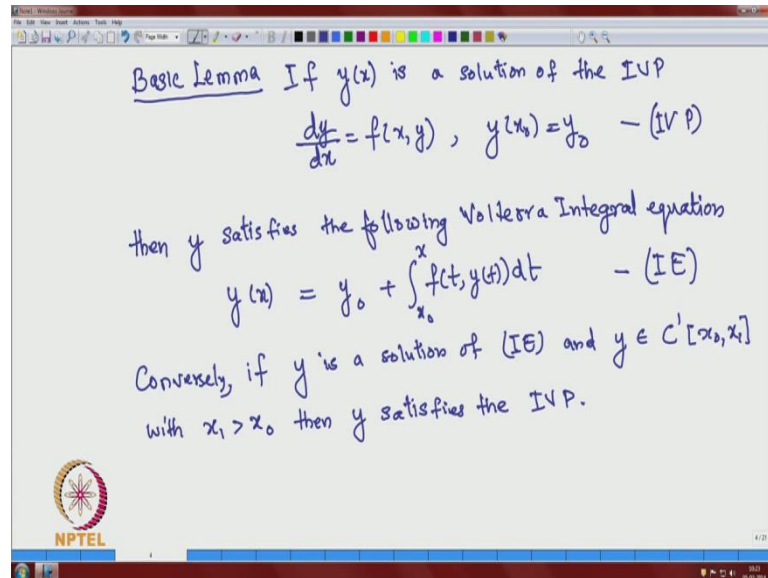 Note1 - Windows Journal
File Edit View Insert Actions Tools Help
Page Width
Basic Lemma If y(x) is a solution of the IVP
dy/dx = f(x, y) , y(x₀) = y₀ - (IVP)
then y satisfies the following Volterra Integral equation
y(x) = y₀ + ∫_{x₀}^{x} f(t, y(t)) dt - (IE)
Conversely, if y is a solution of (IE) and y ∈ C'[x₀, x₁]
with x₁ > x₀ then y satisfies the IVP.
NPTEL
4/21
4
10:23